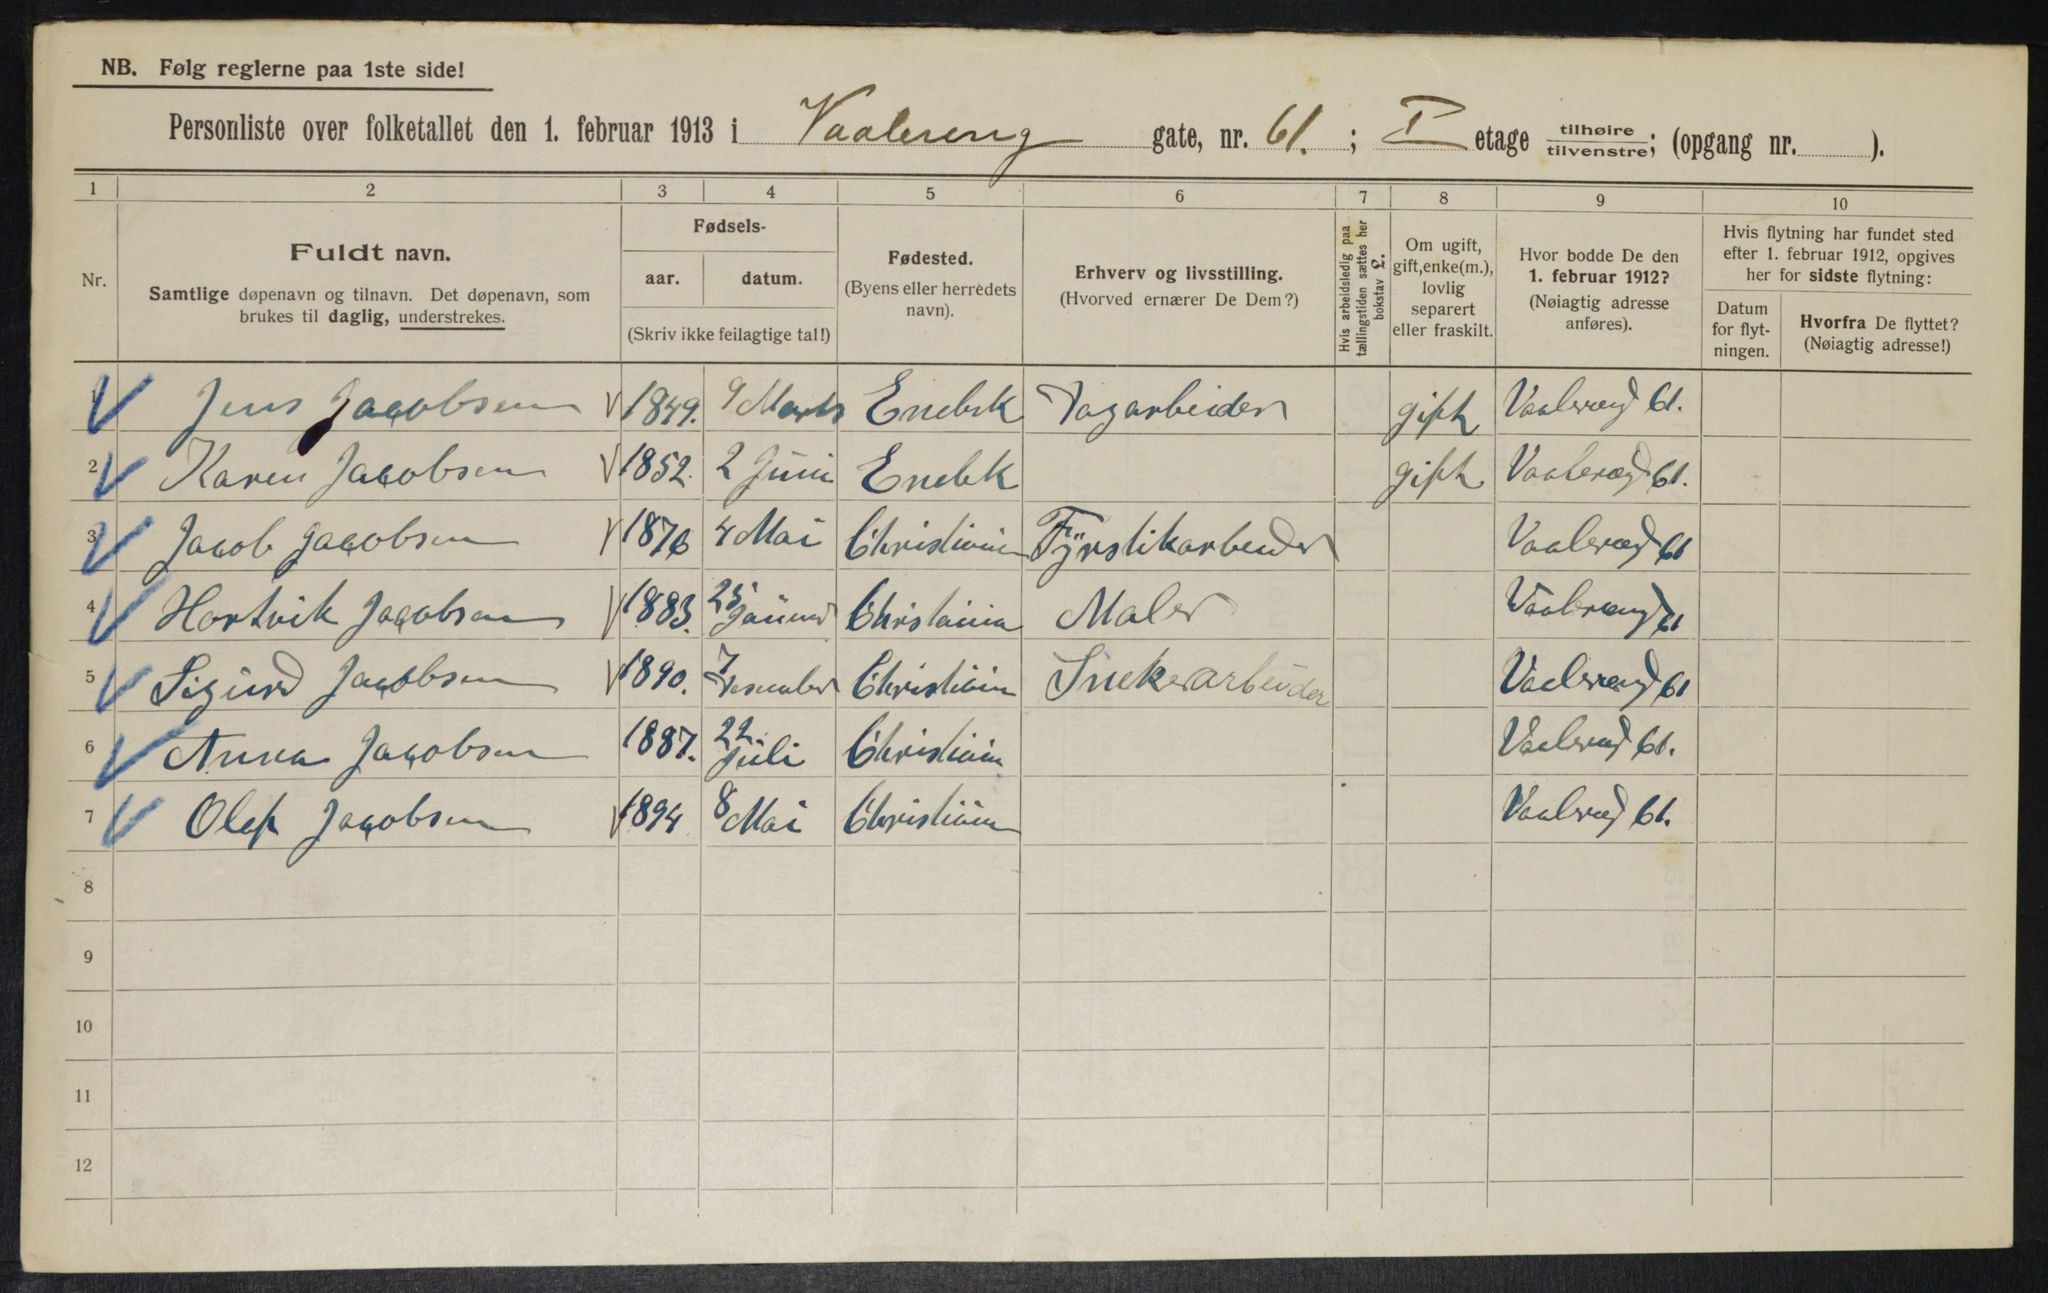 NB. Følg reglerne paa 1ste side!
Personliste over folketallet den 1. februar 1913 i Vaalereng gate, nr. 61. ; I etage tilhøire / tilvenstre; (opgang nr. ).
1 2 3 4 5 6 7 8 9 10
Nr.
Fuldt navn.
Samtlige døpenavn og tilnavn. Det døpenavn, som
brukes til daglig, understrekes.
Fødsels-
aar. datum.
(Skriv ikke feilagtige tal!)
Fødested.
(Byens eller herredets
navn).
Erhverv og livsstilling.
(Hvorved ernærer De Dem?)
Hvis arbeidsledig paa
tællingstiden sættes her
bokstav L.
Om ugift,
gift, enke(m.),
lovlig
separert
eller fraskilt.
Hvor bodde De den
1. februar 1912?
(Nøiagtig adresse
anføres).
Hvis flytning har fundet sted
efter 1. februar 1912, opgives
her for sidste flytning:
Datum
for flyt-
ningen.
Hvorfra De flyttet?
(Nøiagtig adresse!)
1 Jens Jacobsen 1849. 9 Marts Enebk Dagarbeider gift Vaalereng 61.
2 Karen Jacobsen 1852. 2 Juni Enebk gift Vaalereng 61.
3 Jacob Jacobsen 1876 4 Mai Christiania Fyrstikarbeider Vaalereng 61
4 Hartvik Jacobsen 1883. 25 Januar Christiania Maler Vaalereng 61
5 Sigurd Jacobsen 1890. 7 Christiania Snekerarbeider Vaalereng 61
6 Anna Jacobsen 1887. 22. Juli Christiania Vaalereng 61.
7 Olaf Jacobsen 1894 8 Mai Christiania Vaalereng 61.
8
9
10
11
12